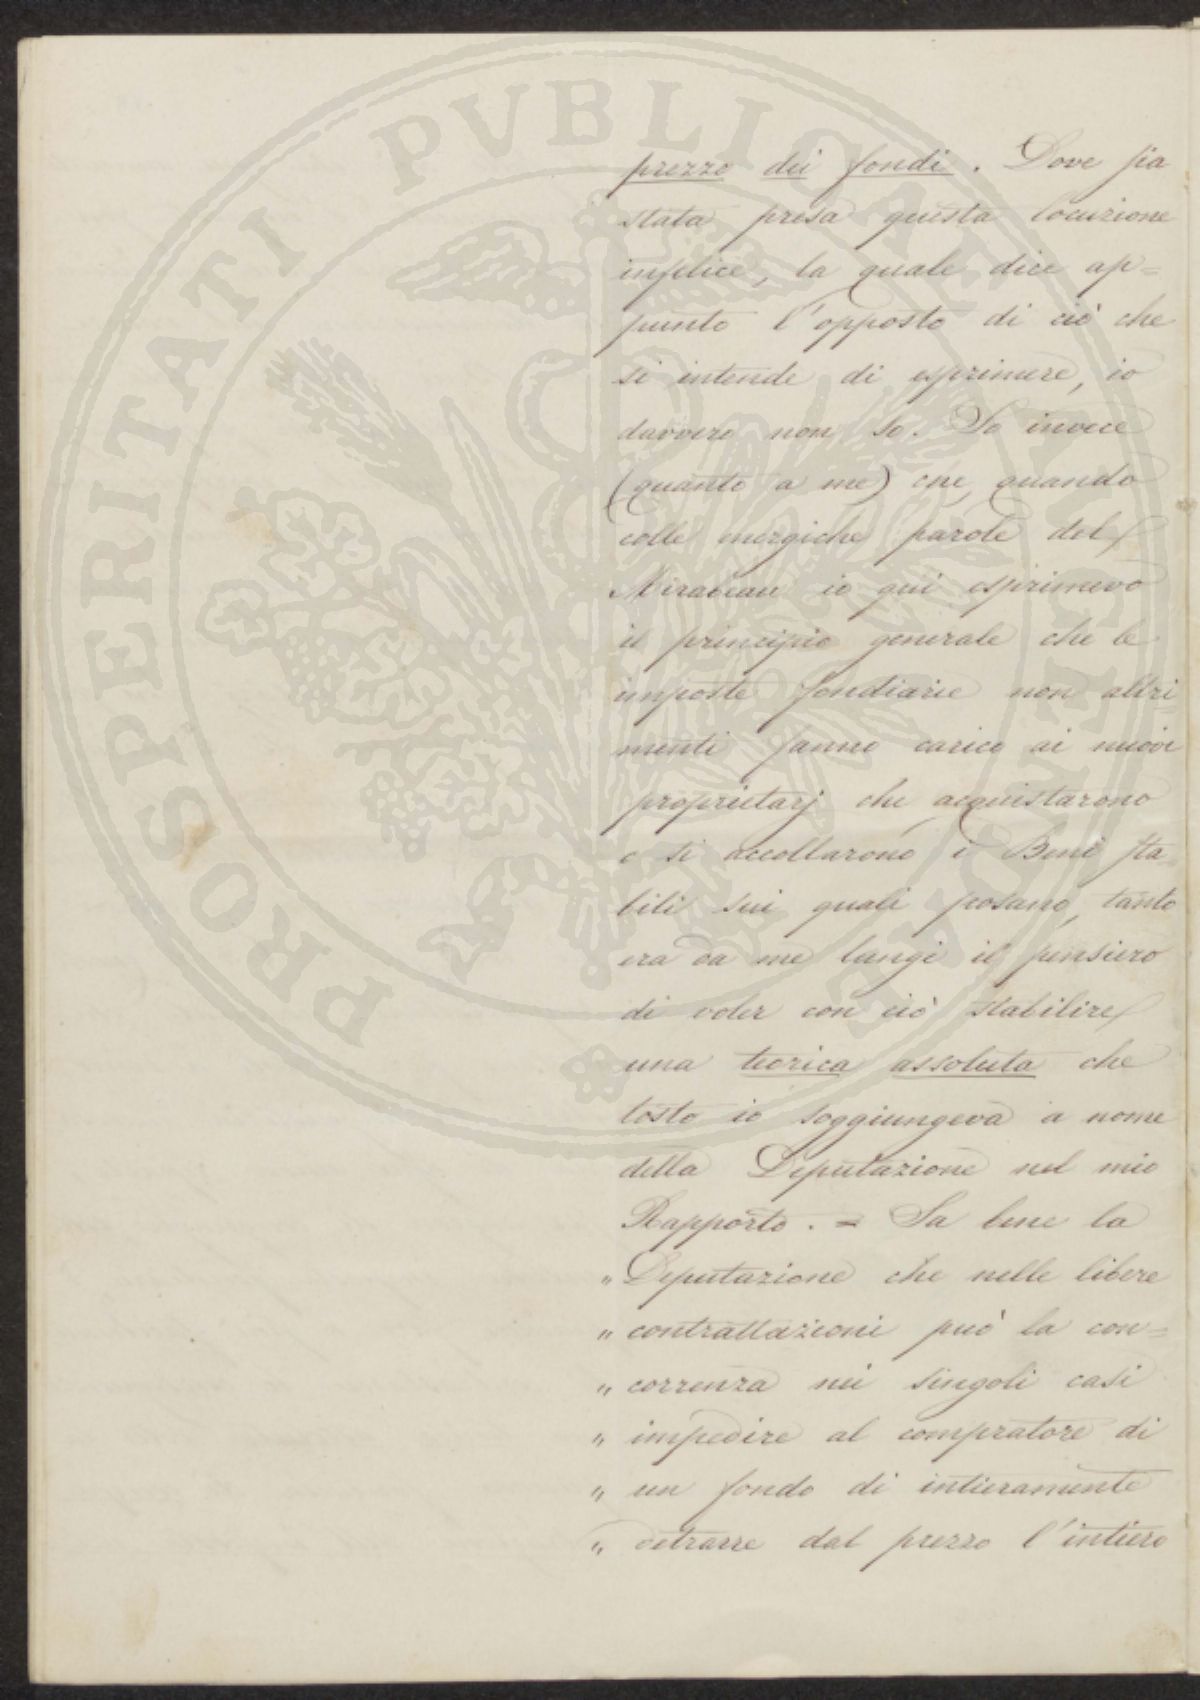 prezzo dei fondi. Dove sia
stata presa questa locuzione
infelice, la quale dice ap=
punto l'opposto di ciò che
si intende di esprimere, io
davvero non so. So invece
(quanto a me) che, quando
colle energiche parole del
Mirabeau io qui esprimevo
il principio generale che le
imposte fondiarie non altri
menti fanno carico ai nuovi
proprietarj che acquistarono
o si accollarono i Beni sta
bili sui quali posano, tanto
era da me lungi il pensiero
di voler con ciò stabilire
una teorica assoluta che
tosto io soggiungeva a nome
della Deputazione nel mio
Rapporto. = Sa bene la
" Deputazione che nelle libere
" contrattazioni può la con=
" correnza nei singoli casi
" impedire al compratore di
" un fondo di intieramente
" detrarre dal prezzo l'intiero
PROSPERITATI PVBLICAE AVGENDAE